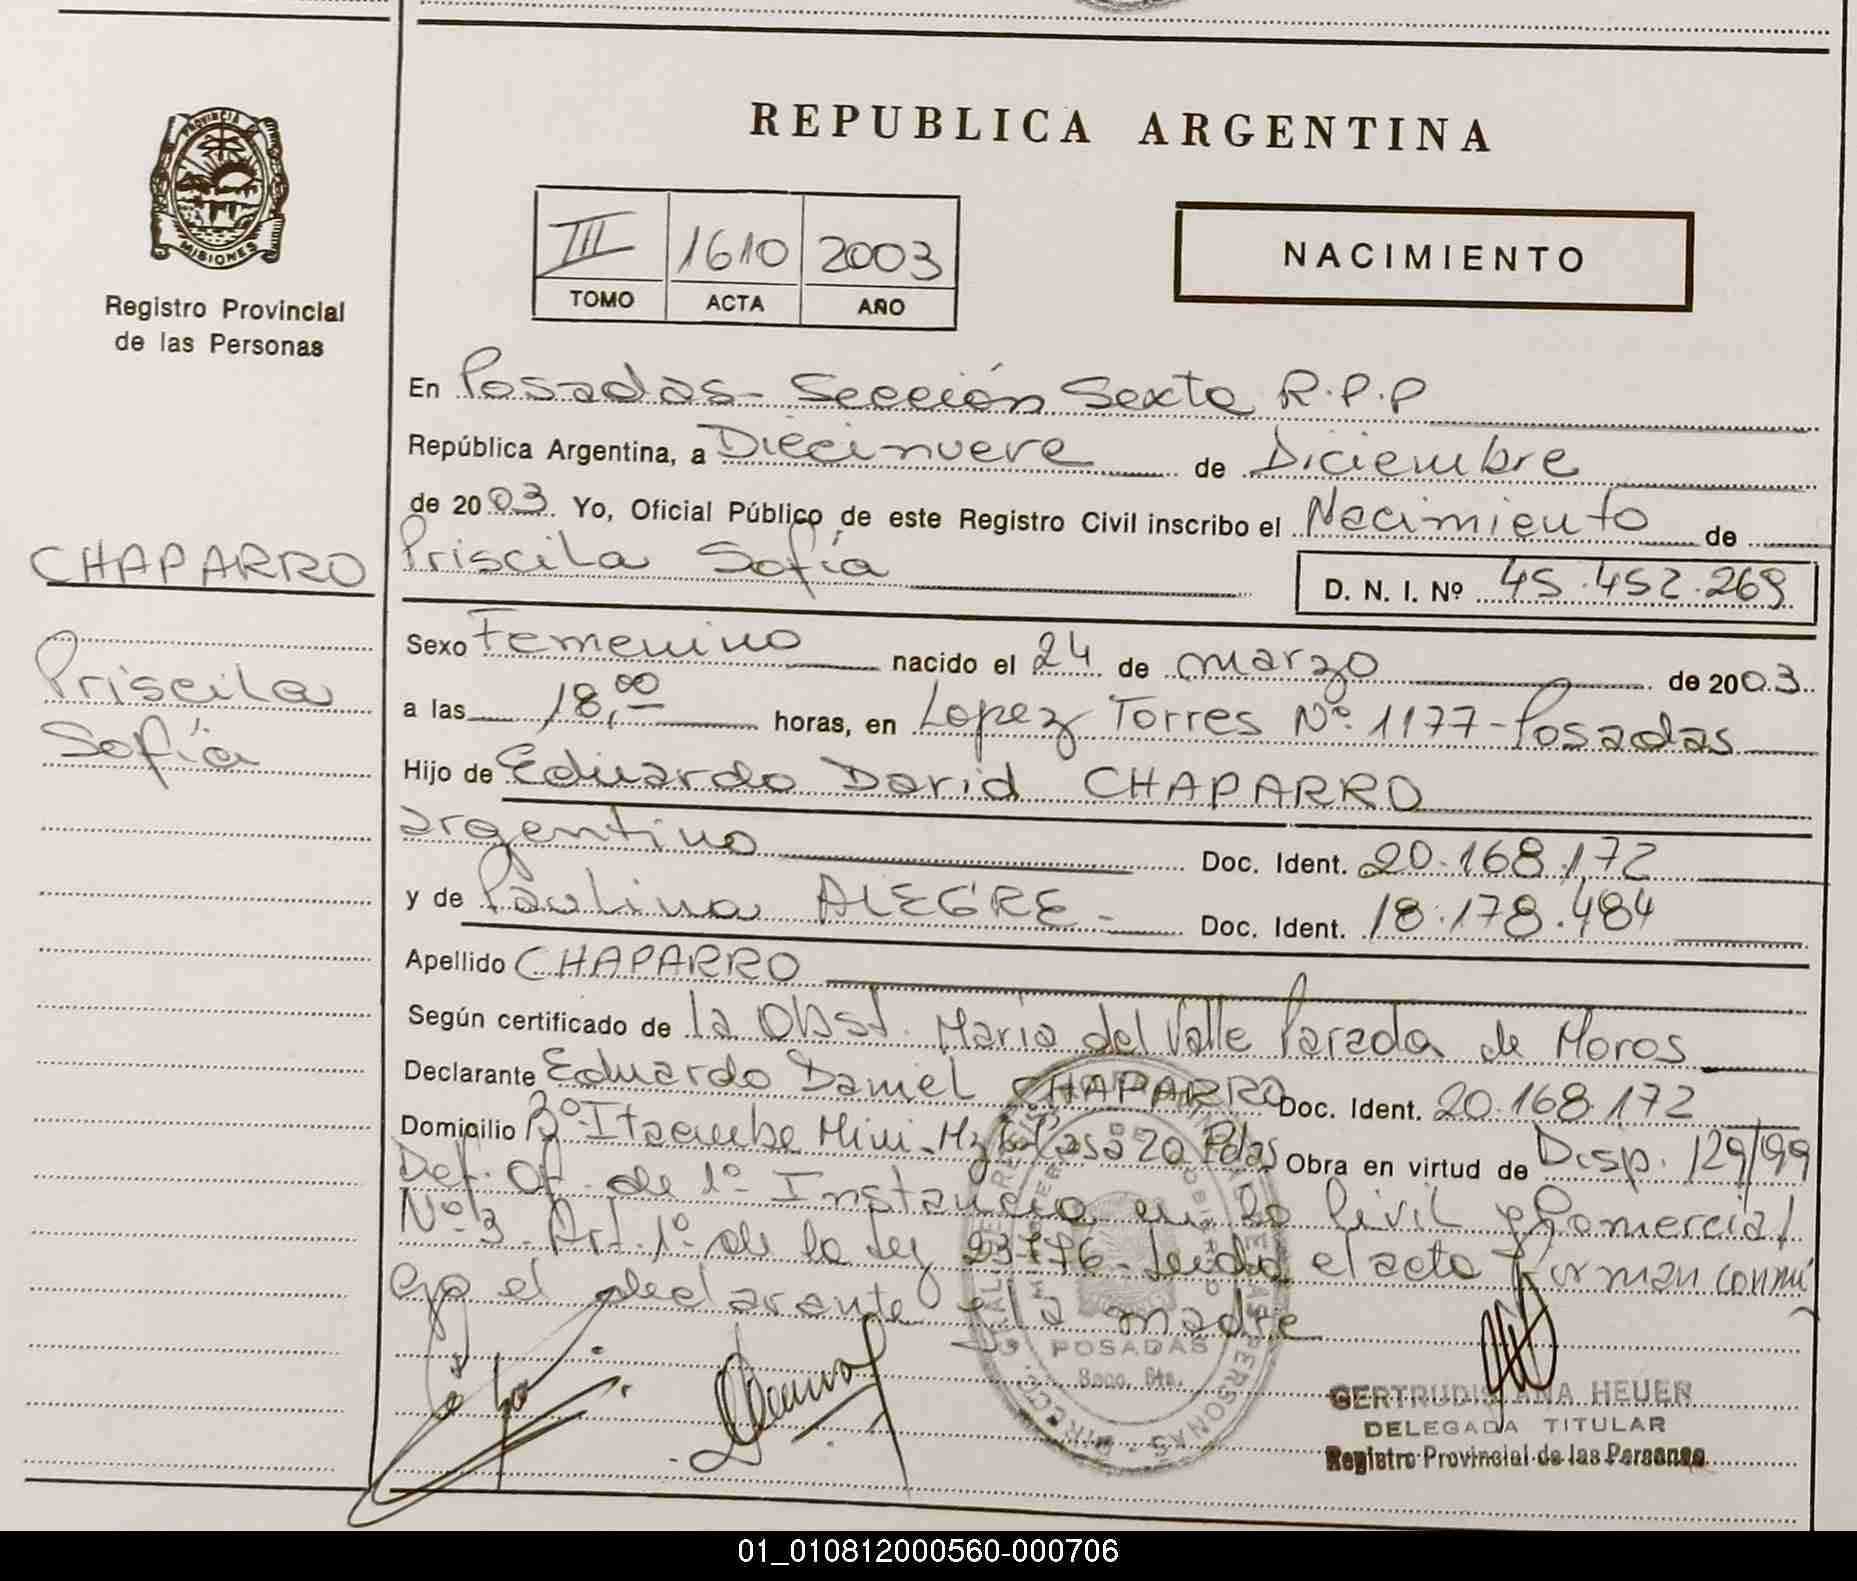 PROVINCIA
MISIONES
Registro Provincial
de las Personas
REPUBLICA ARGENTINA
III 1610 2003
TOMO ACTA AÑO
NACIMIENTO
En Posadas - Sección Sexta R.P.P
República Argentina, a Diecinueve de Diciembre
de 2003. Yo, Oficial Público de este Registro Civil inscribo el Nacimiento de
CHAPARRO
Priscila Sofía
Priscila Sofía
D. N. I. Nº 45.452.269
Sexo Femenino nacido el 24 de marzo de 2003.
a las 18,00 horas, en Lopez Torres Nº 1177 - Posadas
Hijo de Eduardo David CHAPARRO
argentino Doc. Ident. 20.168.172
y de Paulina ALEGRE - Doc. Ident. 18.178.484
Apellido CHAPARRO
Según certificado de la Obst. Maria del Valle Parada de Moros
Declarante Eduardo Daniel CHAPARRO Doc. Ident. 20.168.172
Domicilio Bº Itaembe Mini - Mz Casa 20 Pdas Obra en virtud de Disp. 129/99
Def. Of. de 1º Instancia en lo Civil y Comercial
Nº 3 - Art. 1º de la Ley 23776 - Leida el acta firman conmi
go el declarante y la madre
POSADAS
Secc. 6ta.
GERTRUDIS ANA HEUER
DELEGADA TITULAR
Registro Provincial de las Personas
01_010812000560-000706